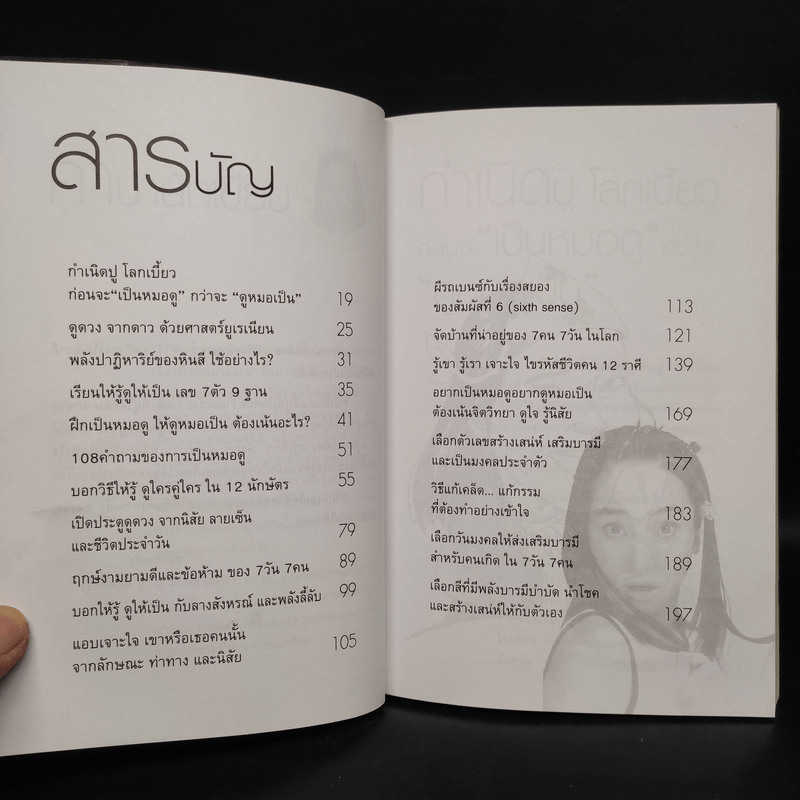 สารบัญ
กำเนิดปู โลกเบี้ยว
ก่อนจะ“เป็นหมอดู” กว่าจะ “ดูหมอเป็น” 19
ดูดวง จากดาว ด้วยศาสตร์ยูเรเนียน 25
พลังปาฏิหาริย์ของหินสี ใช้อย่างไร? 31
เรียนให้รู้ดูให้เป็น เลข 7ตัว 9 ฐาน 35
ฝึกเป็นหมอดู ให้ดูหมอเป็น ต้องเน้นอะไร? 41
108คำถามของการเป็นหมอดู 51
บอกวิธีให้รู้ ดูใครคู่ใคร ใน 12 นักษัตร 55
เปิดประตูดูดวง จากนิสัย ลายเซ็น
และชีวิตประจำวัน 79
ฤกษ์งามยามดีและข้อห้าม ของ 7วัน 7คน 89
บอกให้รู้ ดูให้เป็น กับลางสังหรณ์ และพลังลี้ลับ 99
แอบเจาะใจ เขาหรือเธอคนนั้น
จากลักษณะ ท่าทาง และนิสัย 105
ผีรถเบนซ์กับเรื่องสยอง
ของสัมผัสที่ 6 (sixth sense) 113
จัดบ้านที่น่าอยู่ของ 7คน 7วัน ในโลก 121
รู้เขา รู้เรา เจาะใจ ไขรหัสชีวิตคน 12 ราศี 139
อยากเป็นหมอดูอยากดูหมอเป็น
ต้องเน้นจิตวิทยา ดูใจ รู้นิสัย 169
เลือกตัวเลขสร้างเสน่ห์ เสริมบารมี
และเป็นมงคลประจำตัว 177
วิธีแก้เคล็ด... แก้กรรม
ที่ต้องทำอย่างเข้าใจ 183
เลือกวันมงคลให้ส่งเสริมบารมี
สำหรับคนเกิด ใน 7วัน 7คน 189
เลือกสีที่มีพลังบารมีบำบัด นำโชค
และสร้างเสน่ห์ให้กับตัวเอง 197